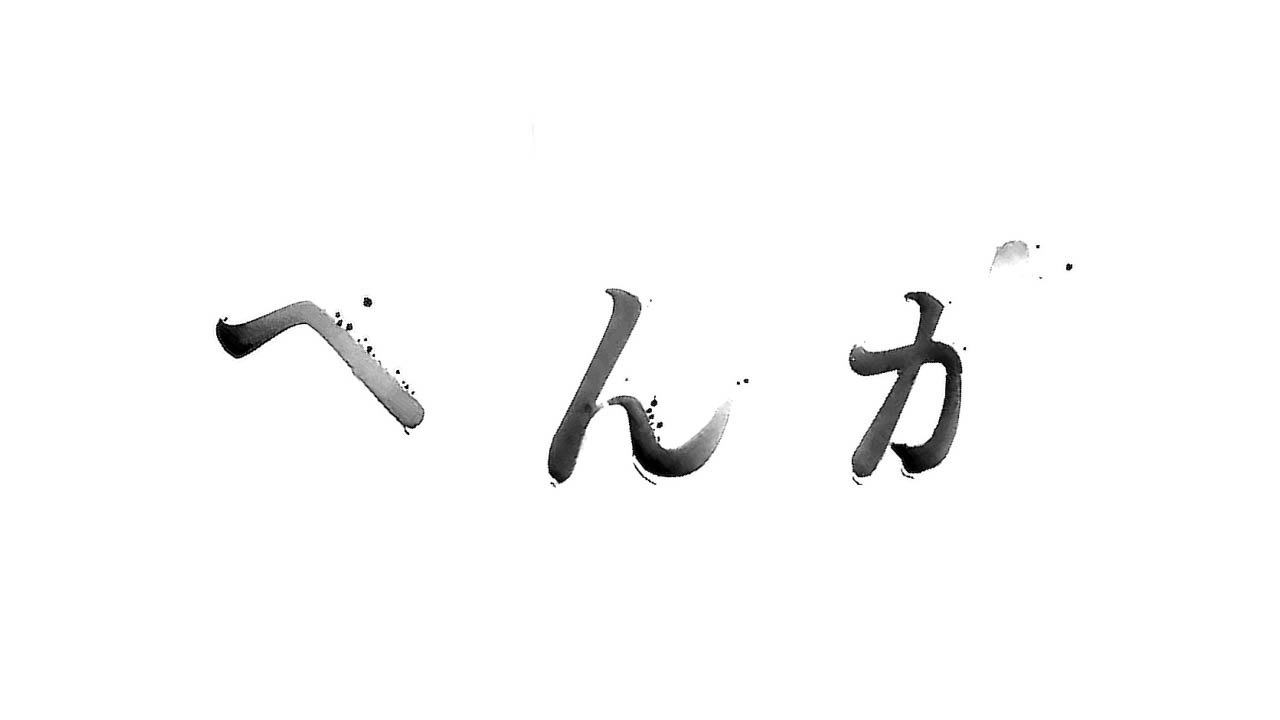 へんか